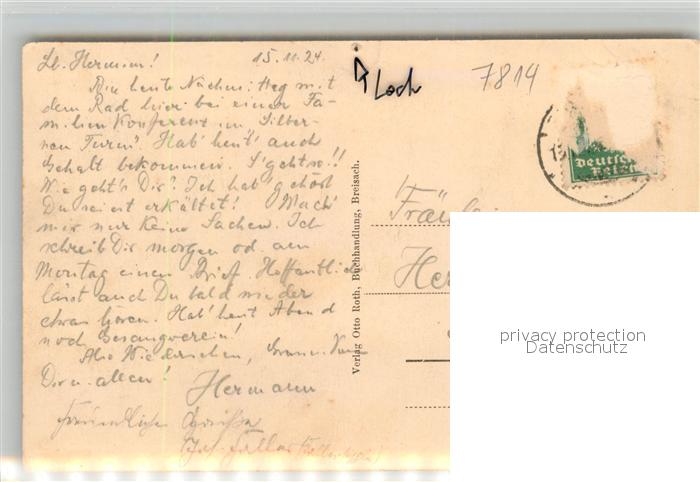 15.11.24.
Bin heute Nachmittag mit
dem Rad hier bei einer Fa-
milien Konferenz im "Silber-
nen Turm". Hab' heut' auch
Gehalt bekommen. S'geht so!!
Wie geht's Dir? Ich hab' gehört
Du seiest erkältet! Mach'
mir nur keine Sachen. Ich
schreib Dir morgen od. am
Montag einen Brief. Hoffentlich
lässt auch Du bald wieder
etwas hören. Hab' heut Abend
noch Gesangverein!
Also Wiedersehen,
Dir u. allen!
Hermann
Freundliche Grüsse
Verlag Otto Roth, Buchhandlung, Breisach.
Loch
7814
Deutsches
Reich
Fräulein
Her
privacy protection
Datenschutz